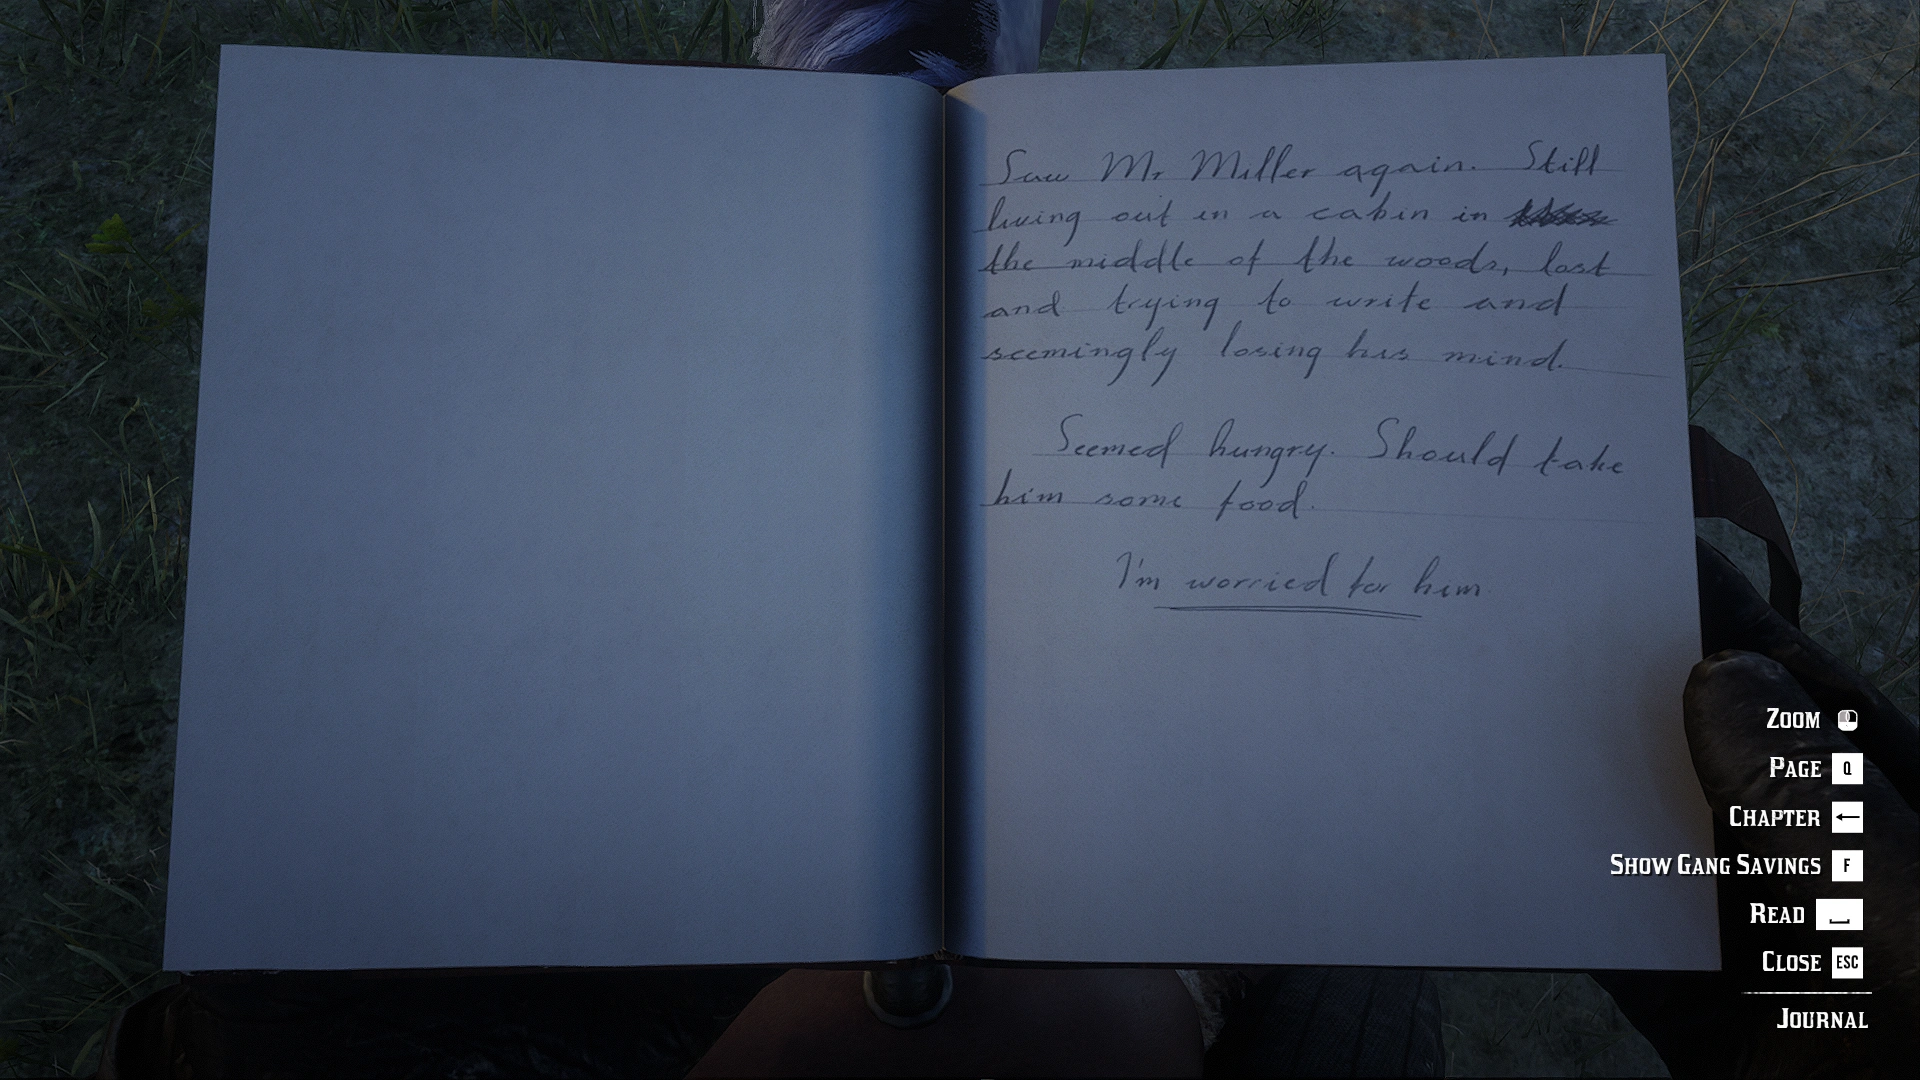 Saw Mr Miller again. Still
living out in a cabin in
the middle of the woods, lost
and trying to write and
seemingly losing his mind.
Seemed hungry. Should take
him some food.
I'm worried for him
ZOOM
PAGE Q
CHAPTER ←
SHOW GANG SAVINGS F
READ
CLOSE ESC
JOURNAL